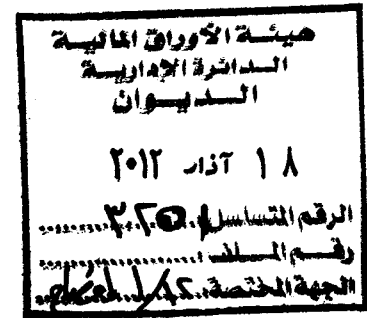 هيئة الأوراق المالية
الدائرة الإدارية
الديوان
١٨ آذار ٢٠١٢
الرقم المتسلسل
رقم الملف :
الجهة المختصة :